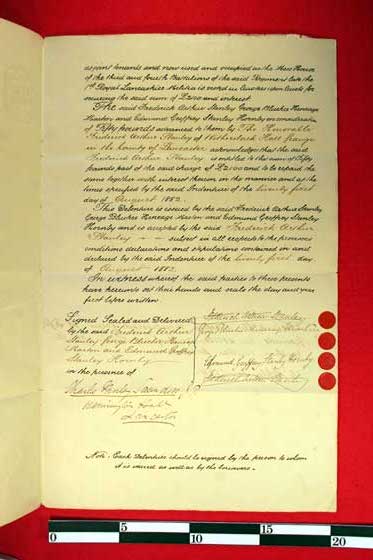 as joint tenants and now used and occupied as the Mess House
of the third and fourth Battalions of the said Regiment late the
1st Royal Lancashire Militia is vested in them upon trusts for
securing the said sum of £2000 and interest.
The said Frederick Arthur Stanley George Blucher Heneage
Marton and Edmund Geoffrey Stanley Hornby in consideration
of Fifty Pounds advanced to them by The Honorable
Frederick Arthur Stanley of Witherslack Hall Grange
in the County of Lancaster acknowledge that the said
Frederick Arthur Stanley is entitled to the sum of Fifty
pounds part of the said charge of £2000 to be repaid the
same together with interest thereon in the manner and at the
times specified by the said Indenture of the twenty first
day of August 1882.
This Debenture is issued by the said Frederick Arthur Stanley
George Blucher Heneage Marton and Edmund Geoffrey Stanley
Hornby and is accepted by the said Frederick Arthur
Stanley — — subject in all respects to the provisoes
conditions declarations and stipulations contained in and
declared by the said Indenture of the twenty first day
of August 1882.
In witness whereof the said parties to these presents
have hereunto set their hands and seals the day and year
first before written
Signed Sealed and Delivered
by the said Frederick Arthur
Stanley George Blucher Heneage
Marton and Edmund Geoffrey
Stanley Hornby
in the presence of
Frederick Arthur Stanley
George Blucher Heneage Marton
Edmund Geoffrey Stanley Hornby
Frederick Arthur Stanley
Charles
Lancaster
Note: Each Debenture should be signed by the person to whom
it is issued as well as by the borrowers.
0 5 10 15 20